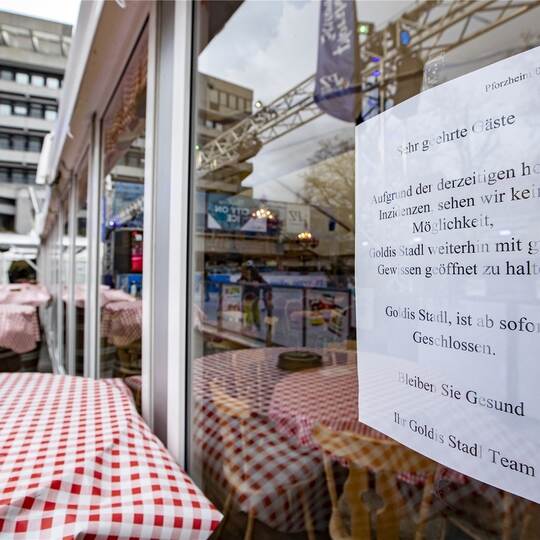 Pforzheim, 0
Sehr geehrte Gäste
Aufgrund der derzeitigen ho
Inzidenzen, sehen wir kei
Möglichkeit,
Goldis Stadl weiterhin mit g
Gewissen geöffnet zu halt
Goldis Stadl, ist ab sofor
Geschlossen.
Bleiben Sie Gesund
Ihr Goldis Stadl Team
CITY ON